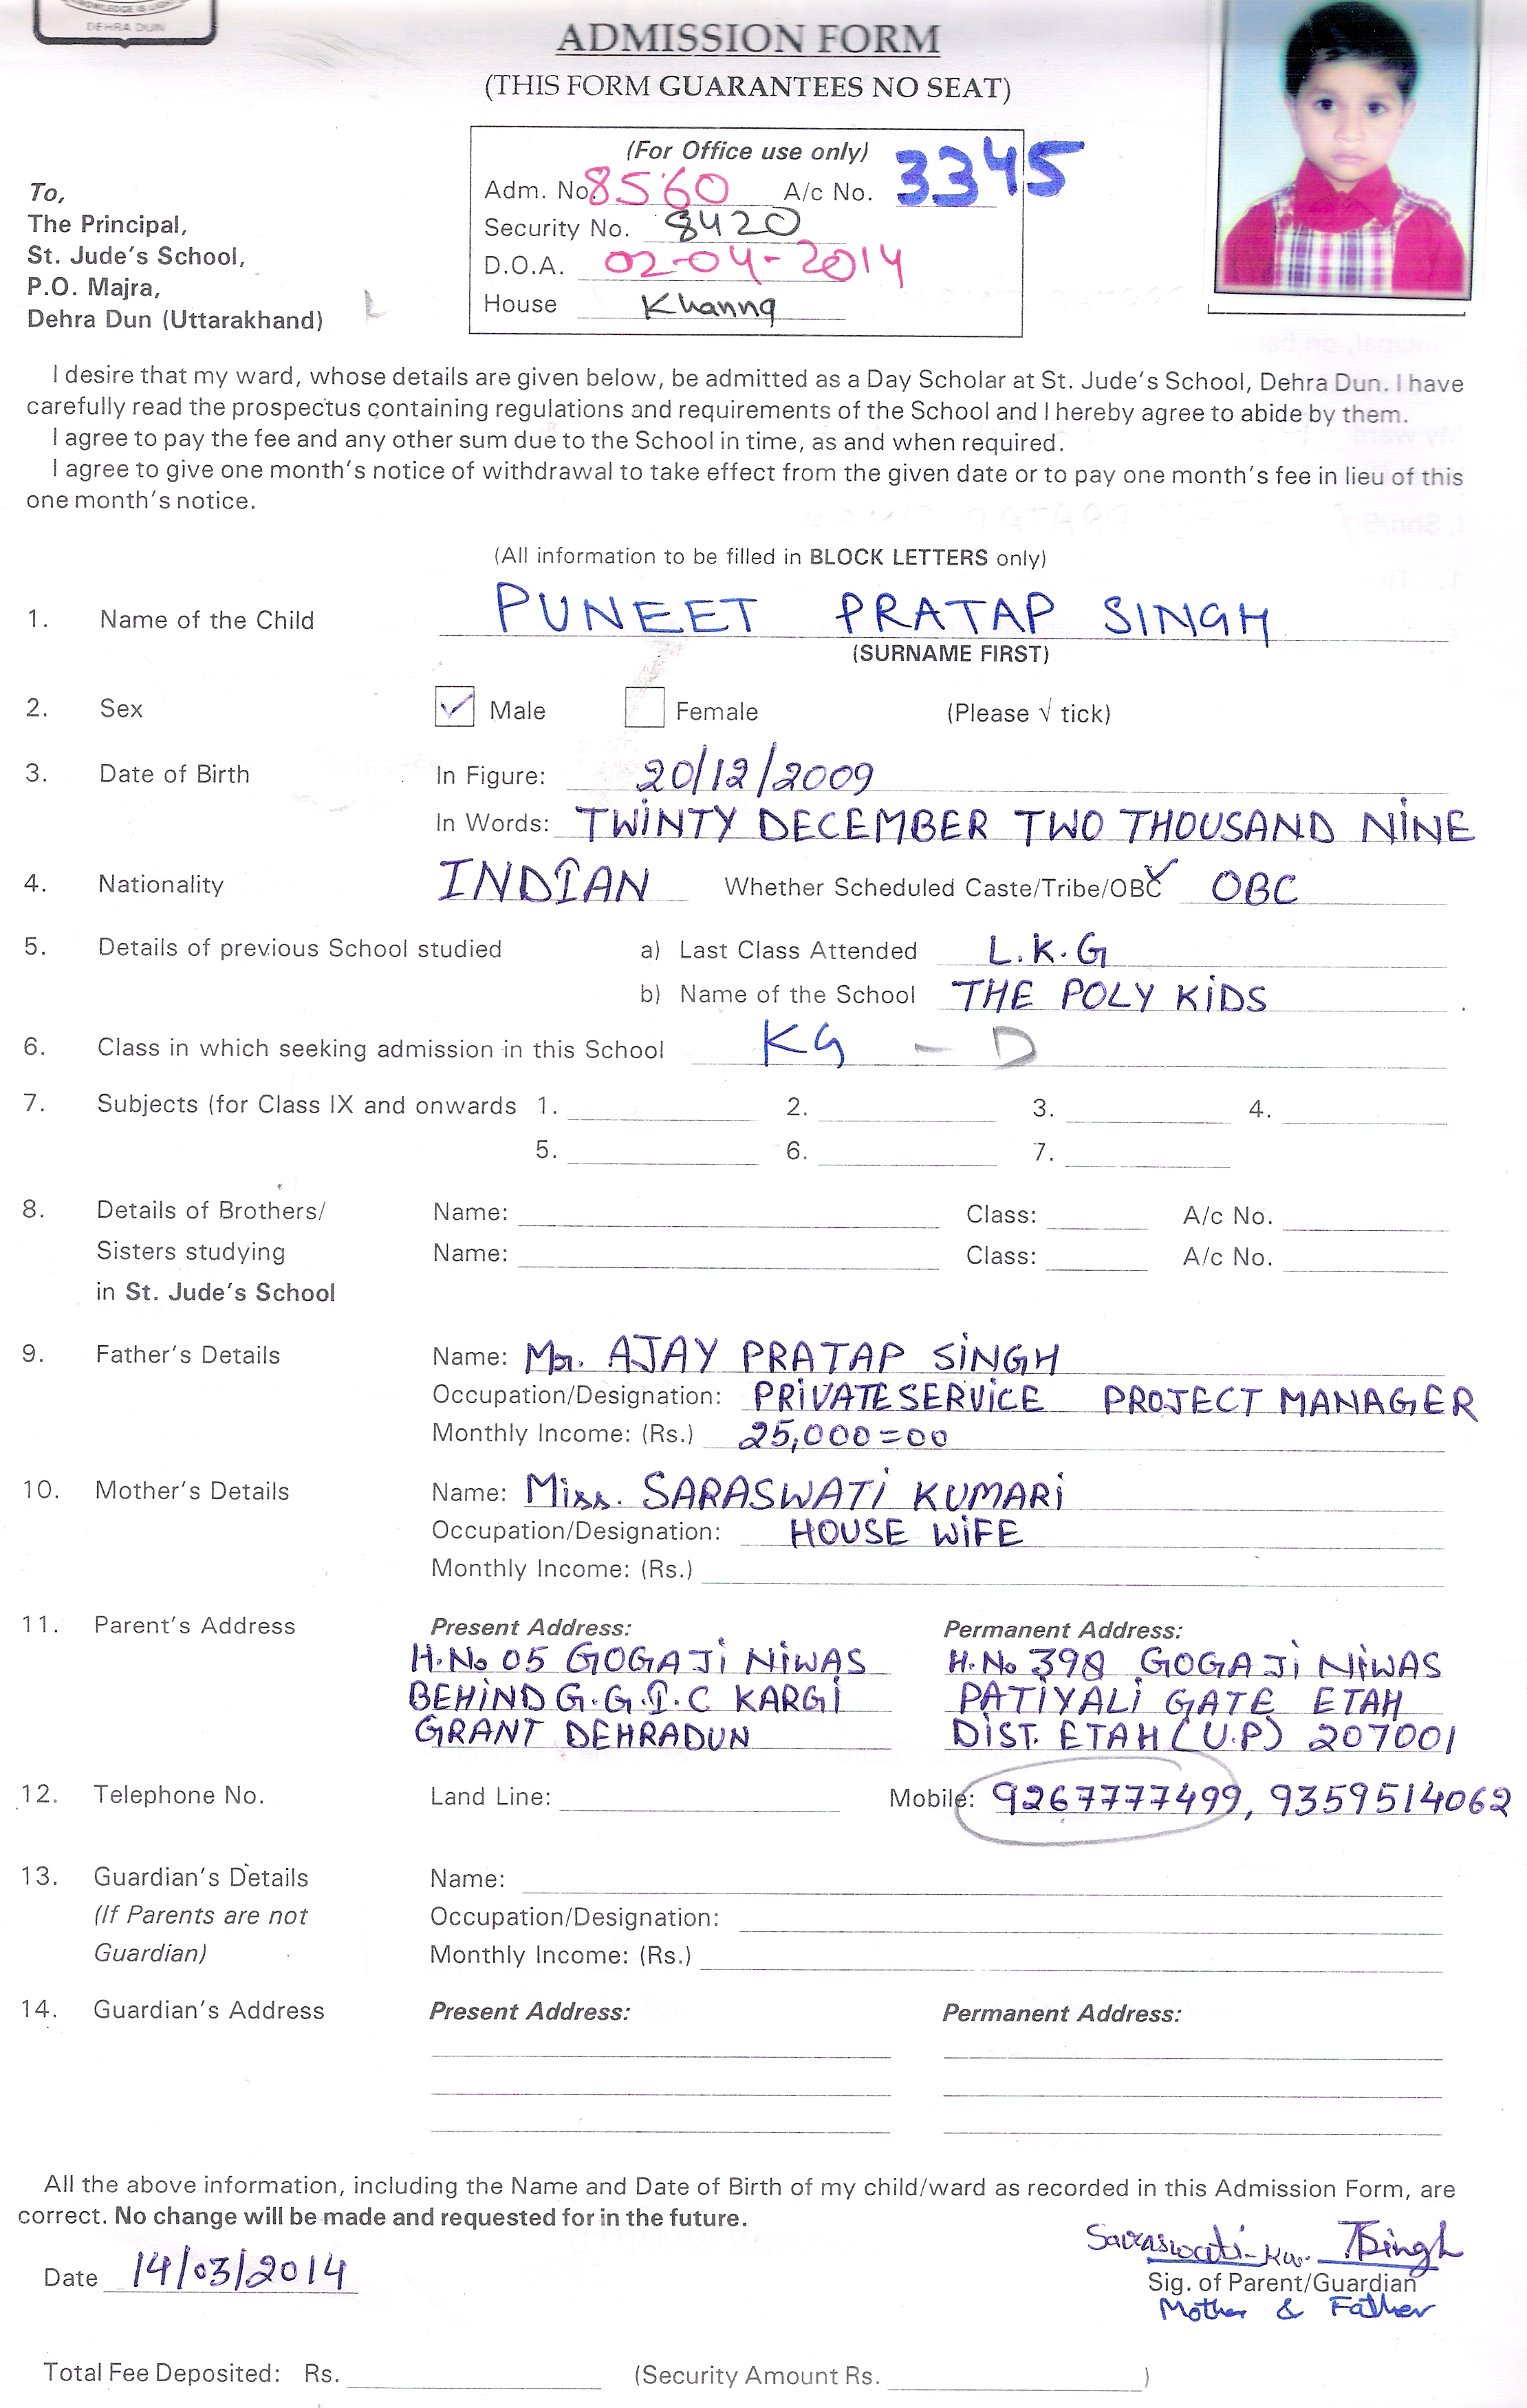 KNOWLEDGE IS LIGHT
DEHRA DUN
ADMISSION FORM
(THIS FORM GUARANTEES NO SEAT)
(For Office use only)
Adm. No. 8560 A/c No. 3345
Security No. 8420
D.O.A. 02-04-2014
House Khanna
To,
The Principal,
St. Jude's School,
P.O. Majra,
Dehra Dun (Uttarakhand)
I desire that my ward, whose details are given below, be admitted as a Day Scholar at St. Jude's School, Dehra Dun. I have
carefully read the prospectus containing regulations and requirements of the School and I hereby agree to abide by them.
I agree to pay the fee and any other sum due to the School in time, as and when required.
I agree to give one month's notice of withdrawal to take effect from the given date or to pay one month's fee in lieu of this
one month's notice.
(All information to be filled in BLOCK LETTERS only)
1. Name of the Child PUNEET PRATAP SINGH
(SURNAME FIRST)
2. Sex ✓ Male Female (Please √ tick)
3. Date of Birth In Figure: 20/12/2009
In Words: TWINTY DECEMBER TWO THOUSAND NINE
4. Nationality INDIAN Whether Scheduled Caste/Tribe/OBC OBC
5. Details of previous School studied a) Last Class Attended L.K.G
b) Name of the School THE POLY KIDS
6. Class in which seeking admission in this School KG - D
7. Subjects (for Class IX and onwards 1. 2. 3. 4.
5. 6. 7.
8. Details of Brothers/ Name: Class: A/c No.
Sisters studying Name: Class: A/c No.
in St. Jude's School
9. Father's Details Name: Mr. AJAY PRATAP SINGH
Occupation/Designation: PRIVATE SERVICE PROJECT MANAGER
Monthly Income: (Rs.) 25,000=00
10. Mother's Details Name: Miss. SARASWATI KUMARI
Occupation/Designation: HOUSE WIFE
Monthly Income: (Rs.)
11. Parent's Address Present Address: Permanent Address:
H.No 05 GOGAJI NIWAS H.No 398 GOGAJI NIWAS
BEHIND G.G.I.C KARGI PATIYALI GATE ETAH
GRANT DEHRADUN DIST. ETAH (U.P) 207001
12. Telephone No. Land Line: Mobile: 9267777499, 9359514062
13. Guardian's Details Name:
(If Parents are not Occupation/Designation:
Guardian) Monthly Income: (Rs.)
14. Guardian's Address Present Address: Permanent Address:
All the above information, including the Name and Date of Birth of my child/ward as recorded in this Admission Form, are
correct. No change will be made and requested for in the future.
Saraswati Ku. Singh
Date 14/03/2014 Sig. of Parent/Guardian
Mother & Father
Total Fee Deposited: Rs. (Security Amount Rs. )